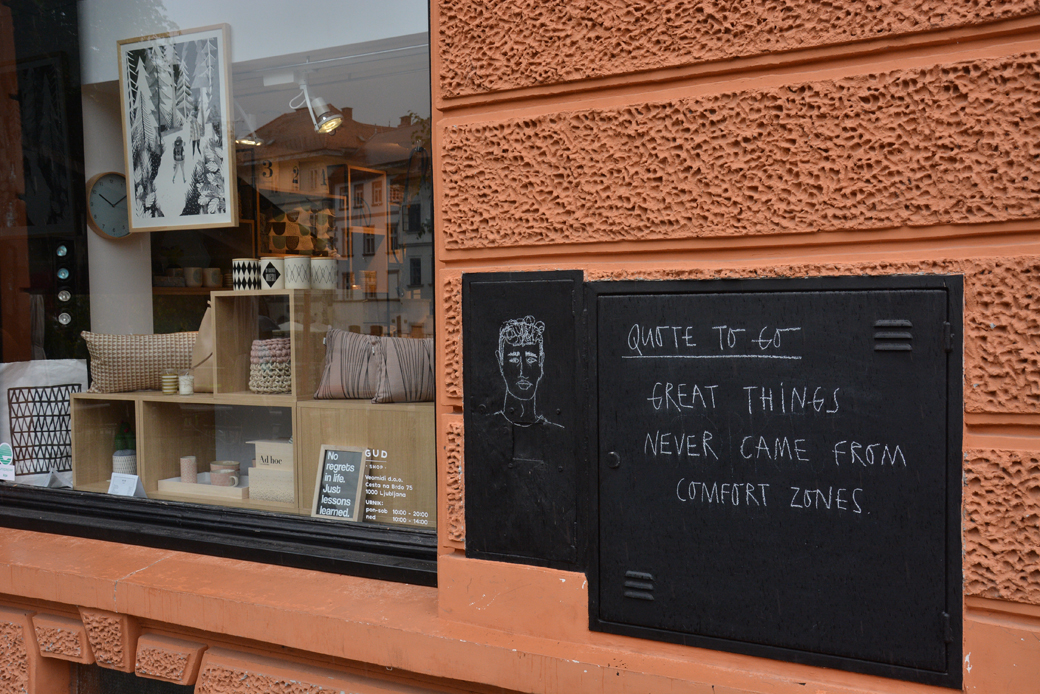 QUOTE TO GO
GREAT THINGS
NEVER CAME FROM
COMFORT ZONES.
Ad hoc
No
regrets
in life.
Just
lessons
learned.
GUD
SHOP
Veomidi d.o.o.
Cesta na Brdo 75
1000 Ljubljana
URNIK:
pon-sob 10:00 - 20:00
ned 10:00 - 14:00